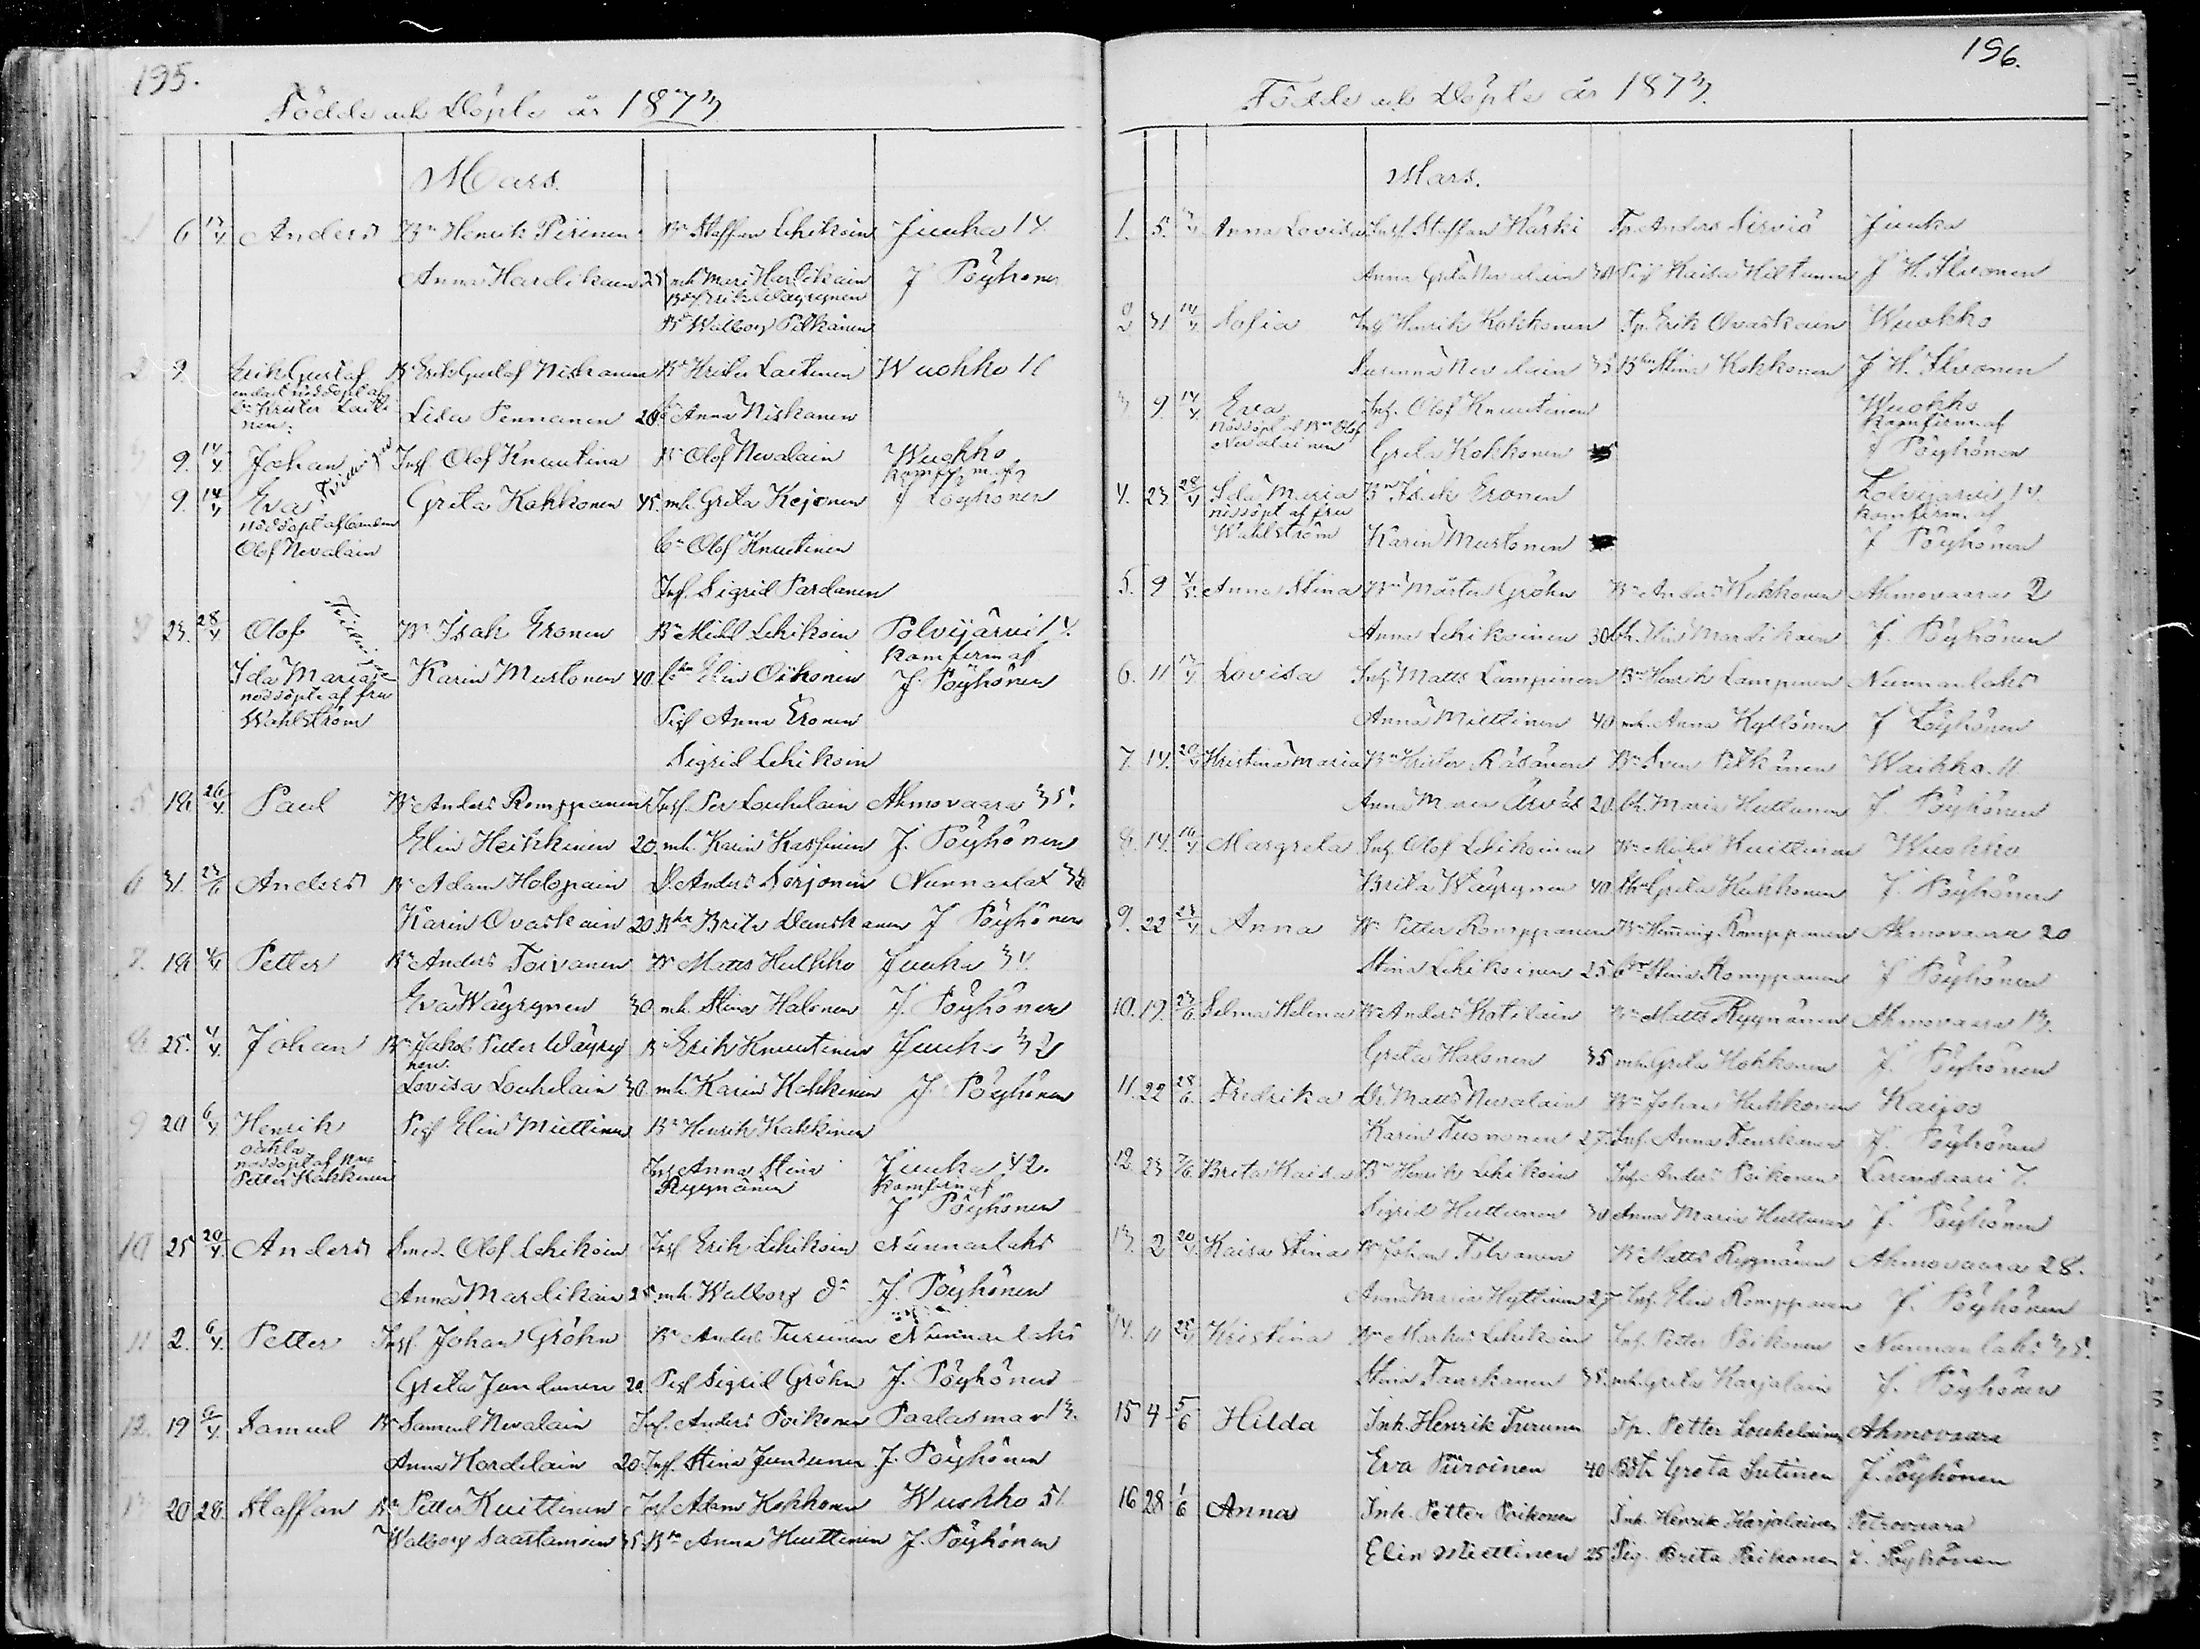 195.
Födde och Döpte år 1873
Mars.
1 6 13/4 Anders Bn Henrik Piirinen Bn Staffan Lehikoin Juuka 14
Anna Hardikain 25 mh Mari Hardikain J Pöyhönen
Bn Walborg Pitkänen
2 9 Erik Gustaf Bn Erik Gustaf Niskanen Bn Krister Laitinen Wuokko 11
endast nöddöpt af
Bn Krister Laiti
nen.
Lisa Pennanen 20 Anna Niskanen
3 9. 14/4 Johan Inh Olof Knuutinen Bn Olof Nevalain Wuokko
komfirm. af
4 9. 14/4 Eva Greta Kokkonen 45. mh Greta Kejonen J Pöyhönen
nöddöpt af bonden
Olof Nevalain Olof Knuutinen
Inh. Sigrid Pardanen
23. 28/4 Olof Bn Isak Eronen Bn Mich Lehikoin Polvijärvi 14.
komfirm af
Ida Maria Karin Mustonen 40. Elin Oikonen J. Pöyhönen
nöddöpte af fru
Wahlström Pig Anna Eronen
Sigrid Lehikoin
5 18 26/4 Paul Bn Anders Romppanen Inh Per Louhelain Ahmovaara 35.
Elin Heikkinen 20. mh. Karin Kassinen J. Pöyhönen
6 31. 23/6 Anders Bn Adam Holopain D. Anders Sorjonen Nunnanlax 38
Karin Ovaskain 20 Brita Danskanen J Pöyhönen
7. 18 Petter Bn Anders Toivanen Bn Matts Hulkko Juuka 34.
Eva Wäyrynen 30 mh. Stina Halonen J. Pöyhönen
8 25. 4/4 Johan Bn Jakob Petter Wäyry Bn Erik Knuutinen Juuka 32
nen.
Lovisa Louhelain 30. mh. Karin Kokkinen J. Pöyhönen
9 20 6/4 Henrik Pig Elin Miettinen Bn Henrik Kakkinen
oäkta
nöddöpt af Bn
Petter Kakkinen Inh Anna Stina Juuka 42.
Ryynänen komfirm af
J Pöyhönen
10 25 20/4 Anders Smed. Olof Lehikoin Inh Erik Lehikoin Nunnanlaks
Anna Mardikain 25. mh. Walborg do J. Pöyhönen
11 2. 6/4 Petter Inh. Johan Gröhn Bn Anders Turunen Nunnanlaks
Greta Juntunen 20 Pig Sigrid Gröhn J. Pöyhönen
12. 19 6/4 Samuel Bn Samuel Nevalain Inh. Anders Poikonen Paalasmaa 13.
Anna Hordilain 20. Inh. Stina Juntunen J. Pöyhönen
13 20 28. Staffan Bn Petter Kuittinen Inh Adam Kokkonen Wuokko 51.
Walborg Saastamoin 35. Anna Huttinen J. Pöyhönen
196.
Födde och Döpte år 1873.
Mars.
1. 5. Anna Lovisa Inh. Staffan Kärki Tp. Anders Sirviö Juuka
Anna Greta Nevalain 30 Pig Kaisa Hiltunen J H. Ilvonen
2 31 14/4 Sofia Inh Henrik Kokkonen Tp. Erik Ovaskain Wuokko
Susanna Nevalain 35 Stina Kokkonen J H. Ilvonen
3 9. 14/4 Eva Inh. Olof Knuutinen Wuokko
nöddöpt af Bn Olof komfirm af
Nevalainen Greta Kokkonen J Pöyhönen
4. 23 28/4 Ida Maria Bn Isak Eronen Polvijärvi 14
nöddöpt af fru komfirm. af
Wahlström Karin Mustonen J Pöyhönen
5. 9 4/5 Anna Stina Bn Mårten Gröhn Bn Anders Kokkonen Ahmovaara 2
Anna Lehikoinen 30 Elin Mardikain J. Pöyhönen
6. 11 13/4 Lovisa Inh Matts Lampinen Bn Henrik Lampinen Nunnanlaks
Anna Miettinen 40 mh. Anna Kyllönen J Pöyhönen
7. 14. 20/4 Kristina Maria Bn Krister Räsänen Bn Sven Pitkänen Waikko. 11
Anna Maria 20. Maria Huttunen J. Pöyhönen
8. 14. 14/4 Margreta Inh. Olof Lehikoinen Bn Mickel Kuittinen Wuokko
Brita Wäyrynen 40 Greta Kukkonen J. Pöyhönen
9. 22 28/4 Anna Bn Petter Romppanen Bn Henning Romppanen Ahmovaara 20
Stina Lehikoinen 25 Stina Romppanen J Pöyhönen
10. 19. 23/6 Selma Helena Bn Anders Kotilain Bn Matts Ryynänen Ahmovaara 13.
Greta Halonen 35 mh Greta Kokkonen J. Pöyhönen
11. 22 28/6. Fredrika Dr Matts Nevalain Bn Johan Hukkonen Kajoo
Karin Tuononen 27. Inh. Anna Tenskanen J. Pöyhönen
12. 23 7/6 Brita Kaisa Bn Henrik Lehikoin Inh Anders Poikonen Larinsaari 7.
Sigrid Huttunen 30 Anna Maria Huttunen J. Pöyhönen
13. 2 20/4 Kaisa Stina Bn Johan Tolvanen Bn Matts Ryynänen Ahmovaara 28.
Anna Maria Hyttinen 27 Inh. Elin Romppanen J. Pöyhönen
14. 11 25/4 Kristina Bn Markus Lehikoin Inh. Petter Poikonen Nunnanlaks 35.
Stina Tanskanen 35. mh. Greta Karjalain J. Pöyhönen
15 4 5/6 Hilda Inh. Henrik Turunen Tp. Petter Louhelainen Ahmovaara
Eva Piiroinen 40 Greta Sutinen J. Pöyhönen
16 28 1/6 Anna Inh. Petter Poikonen Inh. Henrik Karjalainen Petrovaara
Elin Miettinen 25 Pig. Brita Poikonen J. Pöyhönen